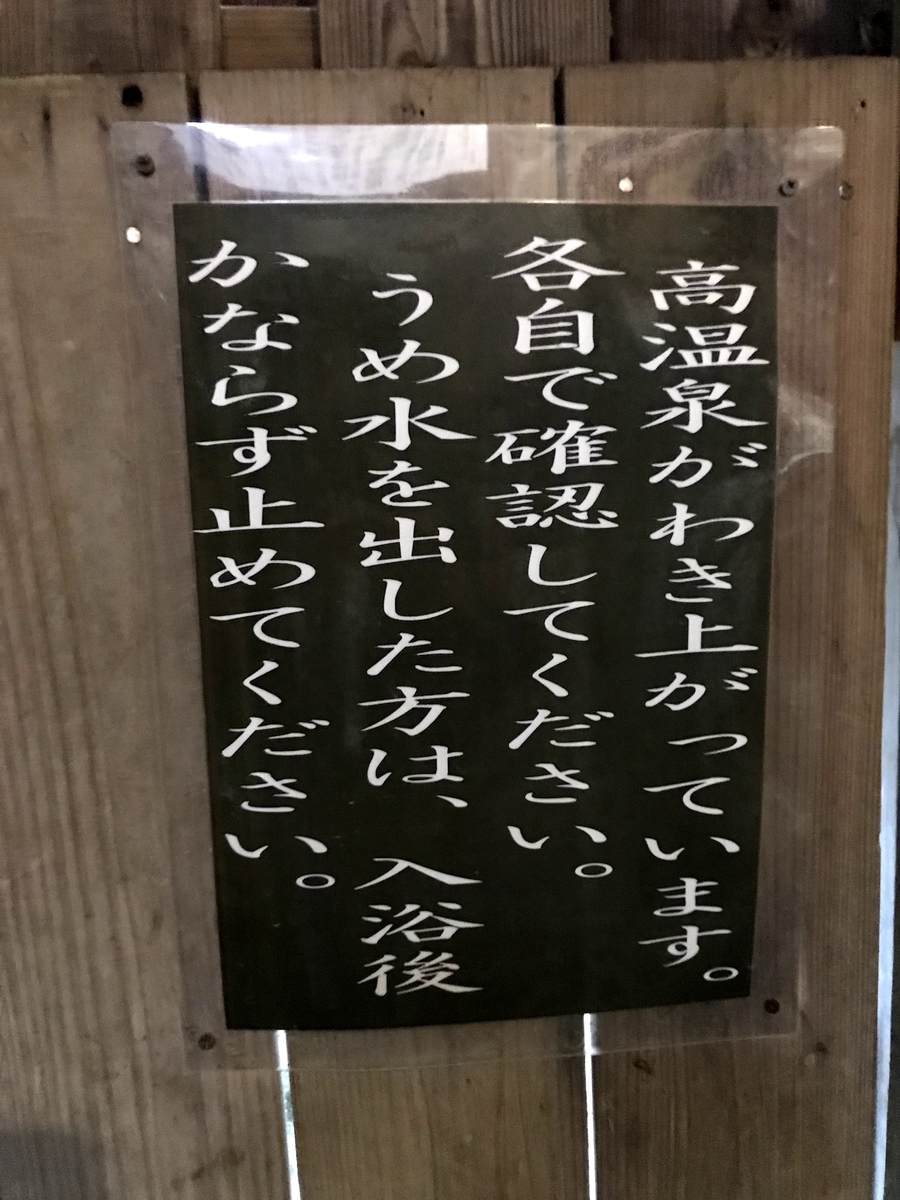 高温泉がわき上がっています。
各自で確認してください。
うめ水を出した方は、入浴後
かならず止めてください。